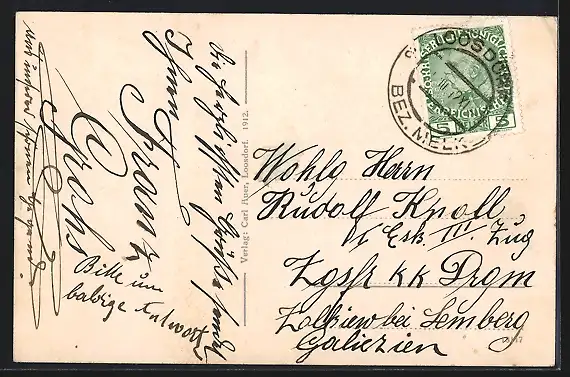 Die herzlichsten Grüße sendet
Ihnen
Franz
Grohs
Bitte um
baldige Antwort
Verlag: Carl Ruer, Loosdorf. 1912.
LOOSDORF
BEZ. MELK
5
Wohlg Herrn
Rudolf Knoll
Esk. III. Zug
Zgsfr KK Drgm
Zolkiew bei Lemberg
Galiezien